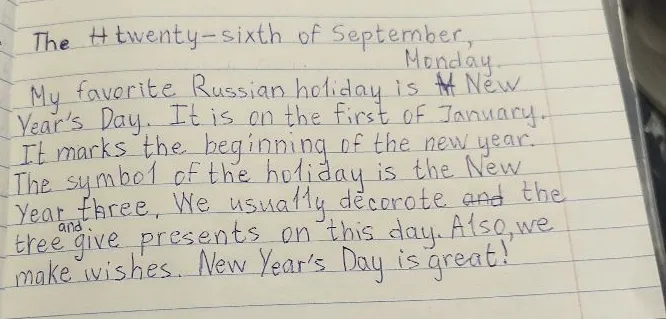 The twenty-sixth of September,
Monday.
My favorite Russian holiday is New
Year's Day. It is on the first of January.
It marks the beginning of the new year.
The symbol of the holiday is the New
Year three. We usually decorote and the
tree and give presents on this day. Also, we
make wishes. New Year's Day is great!